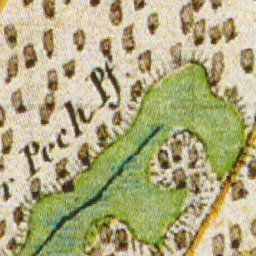 r Pech Pf.